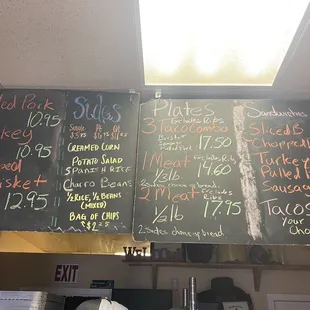 Pork
10.95
key
10.95
sket
12.95
Sides
Single Pt Qt
CREAMED CORN
POTATO SALAD
SPANISH RICE
Charro Beans
1/2 RICE, 1/2 BEANS
(MIXED)
BAG OF CHIPS
$2
Plates
Excludes Ribs
3 Taco Combo
Brisket
17.50
1 Meat Excludes Ribs
1/2 lb 14.60
2 Sides
bread
2 Meat Excludes Ribs
1/2 lb 17.95
2 Sides
bread
Sandwiches
Sliced B
Chopped
Turkey
Pulled
Sausag
Tacos
Your
Cho
EXIT